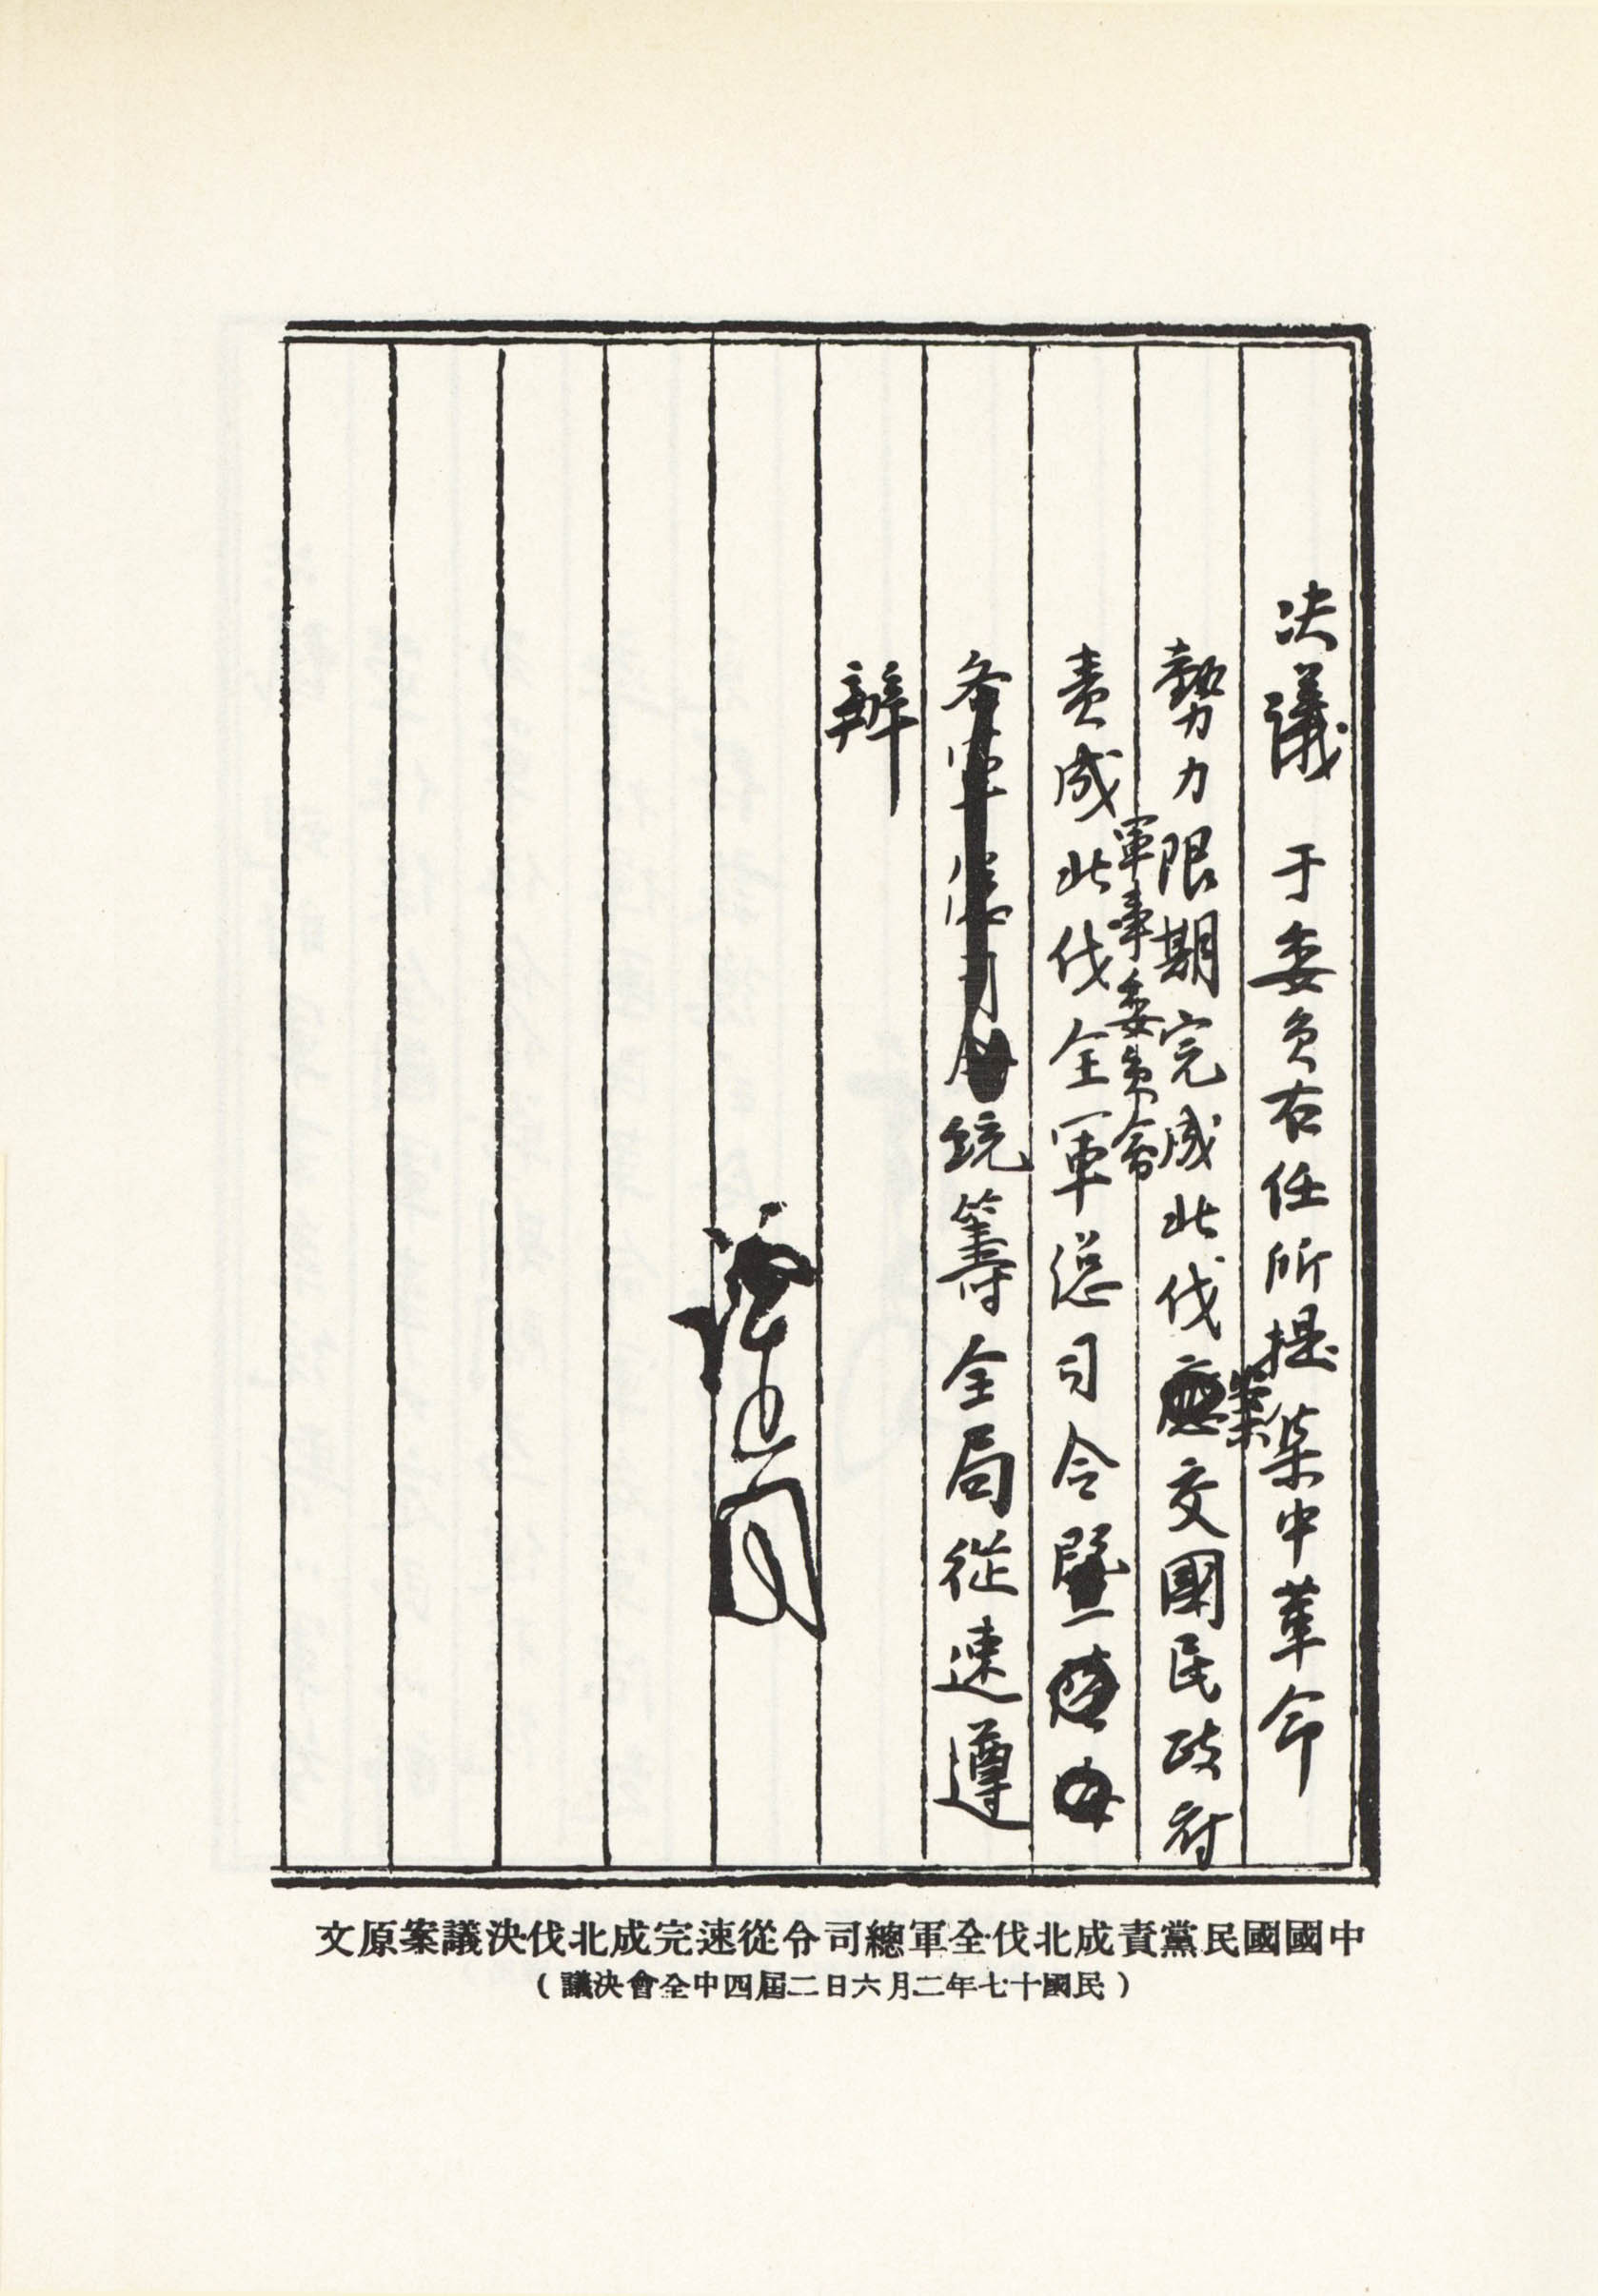 決議 于委員右任所提集中革命
勢力限期完成北伐案交國民政府
軍事委員會
責成北伐全軍総司令暨
統籌全局從速遵
辦
中國國民黨責成北伐全軍總司令從速完成北伐決議案原文
（民國十七年二月六日二屆四中全會決議）